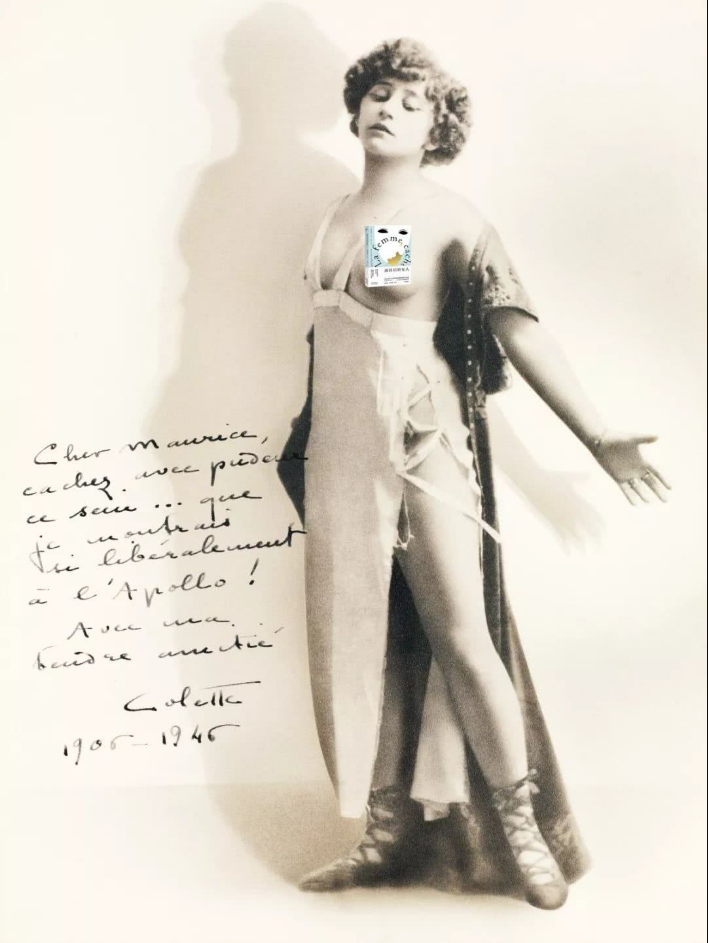 La femme cach
Cher Maurice,
cachez avec pudeur
ce sein ... que
je montrais
si libéralement
à l'Apollo !
Avec ma
tendre amitié
Colette
1906-1946